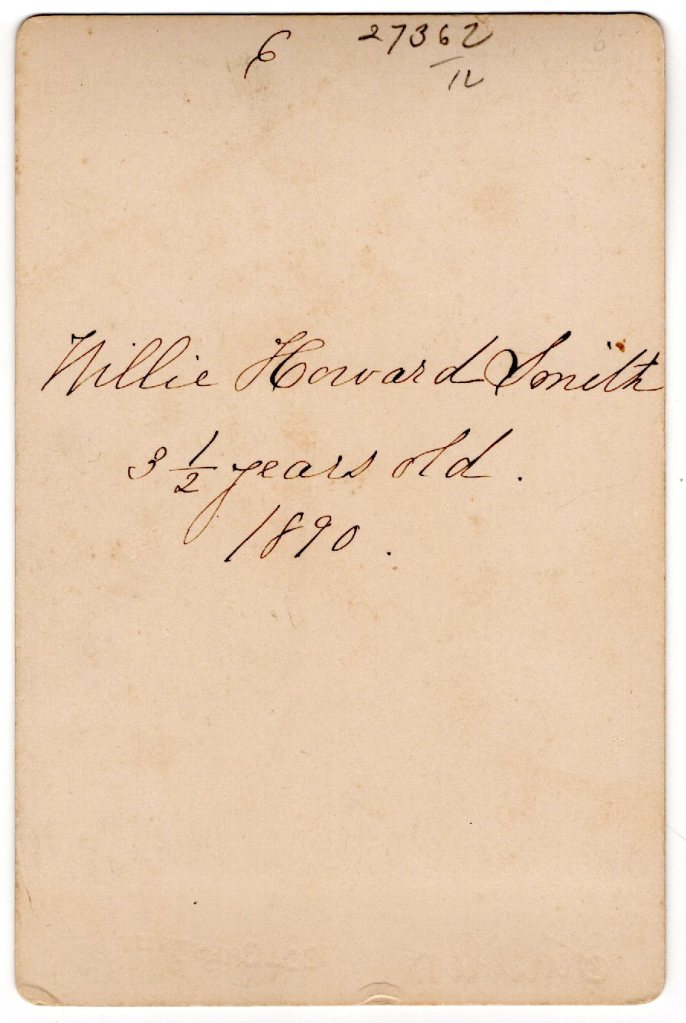 6 27362
12
Willie Howard Smith
3 1/2 years old.
1890.